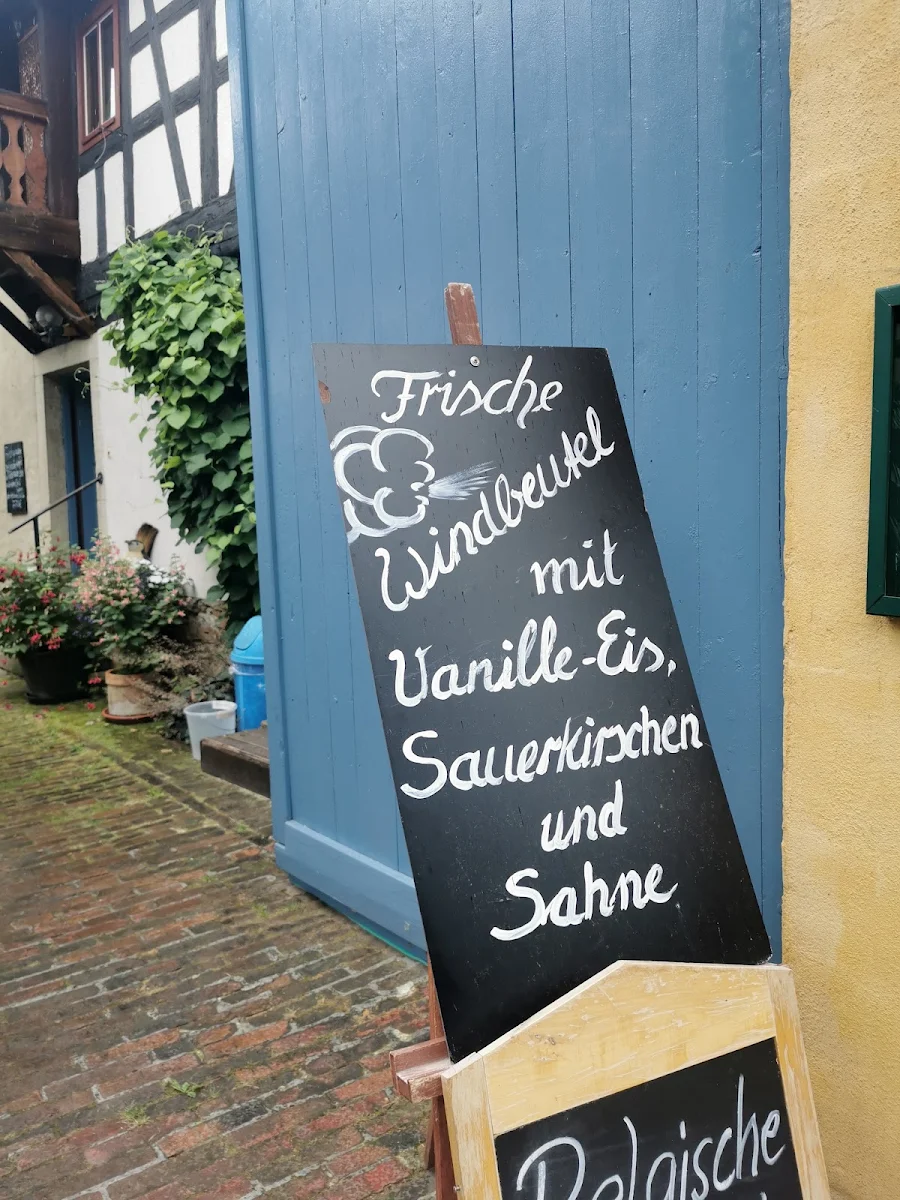 Frische
Windbeutel
mit
Vanille-Eis,
Sauerkirschen
und
Sahne
Belgische